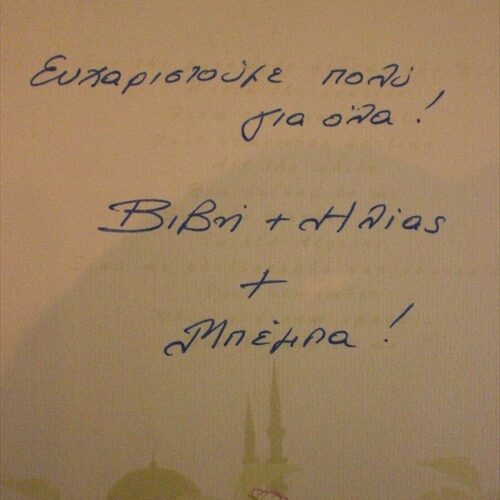 Ευχαριστούμε πολύ
για όλα!
Βιβή + Ηλίας
+
Μπέμπα!